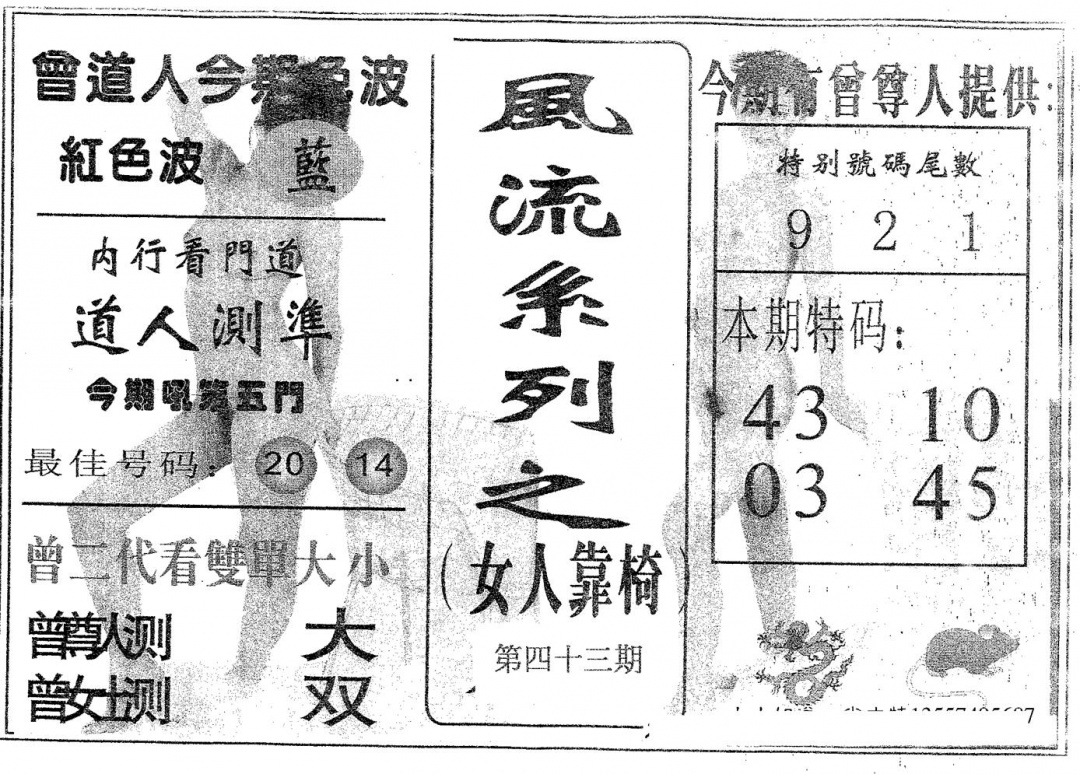 曾道人今期色波
紅色波 藍
内行看門道
道人測準
今期吼第五門
最佳号码： 20 14
曾二代看雙單大小
曾尊人测 大
曾女士测 双
風流系列之
（女人靠椅）
第四十三期
今期有曾尊人提供：
特别號碼尾數
9 2 1
本期特码：
43 10
03 45